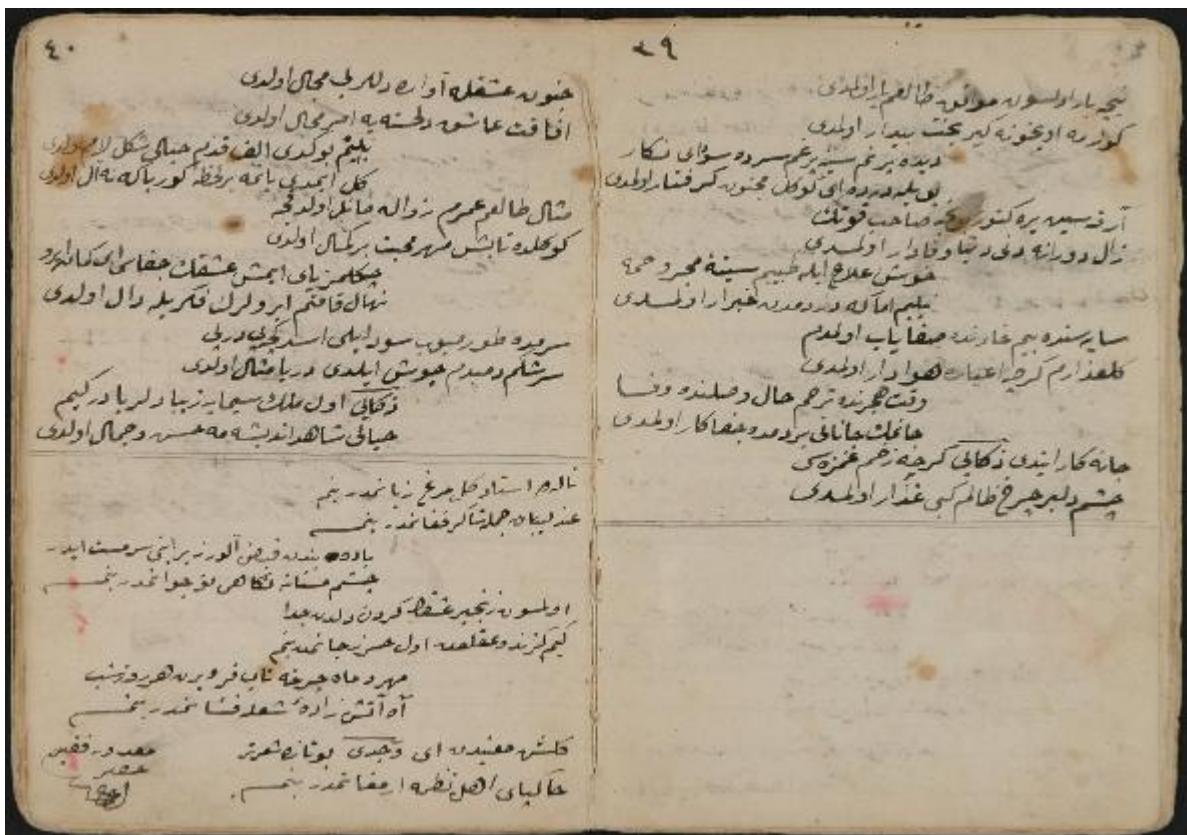 ٣٩
نیجه یار اولسون موافق طالعم یار اولمدی
کورمه اویخونه کیر بخت بیدار اولمدی
دیده پر نم سینه پر غم سرده سودای نکار
بویله درده ای کوکل مجنون کرفتار اولمدی
صاحب قوتك
زال دورانه دلی دنیا وفادار اولمدی
خوش علاج ایله طبیبم سینهٔ مجروحمه
بیلیم اما که دردمدن خبردار اولمدی
سایه سنده بیم صفایاب اولمدم
کلعذارم کرچه اغیاره هوادار اولمدی
وقت هجرنده ترحم حال وصلنده وفا
جانمك جانانی بردمده جفاکار اولمدی
جانه کار ایتدی ذکایی کرچه زخم غمزه سی
چشم دلبر چرخ ظالم کبی غدار اولمدی
٤٠
جنون عشقله آواره دللر بی مجال اولدی
افاقت عاشق دلخسته یه امر محال اولدی
بلیم بوکدی الف قدم خیالی شکل لام اولدی
کل ایمدی یانمه بر لحظه کور باکه نه آل اولدی
مثال طالعم عمرم زواله مائل اولدقجه
کوکلده تابش مهر محبت بر کمال اولدی
چکلمز یای ایمش عشقك جفاسی ای کمان ابرو
نهال قامتم ابرولرك فکریله دال اولدی
سرمده طور محبوب سودا یلی اسدکجه
سرشکم دمبدم جوش ایلدی دریا مثال اولدی
ذکایی اول ملك سیما زیبا دلربا در کیم
خیالی شاهد اندیشه مه حسن و جمال اولدی
استاد کل مرغ زبانمدر بنم
عندلیبان جمله شاکرد فغانمدر بنم
باده بندن فیض آلور زیرا بنی سرمست ایدر
چشم مستانه نکاهی نوجوانمدر بنم
اولسون زنجیر عشقك کردن دلدن جدا
کیم اول حسن جانمدر بنم
مهر و ماه چرخه تاب و فر ویرن هر روز و شب
آه آتش زادهٔ شعله فشانمدر بنم
کلشن معنیده ای وجدی بو تازه شعر تر
خاکپای اهل نظمه ارمغانمدر بنم